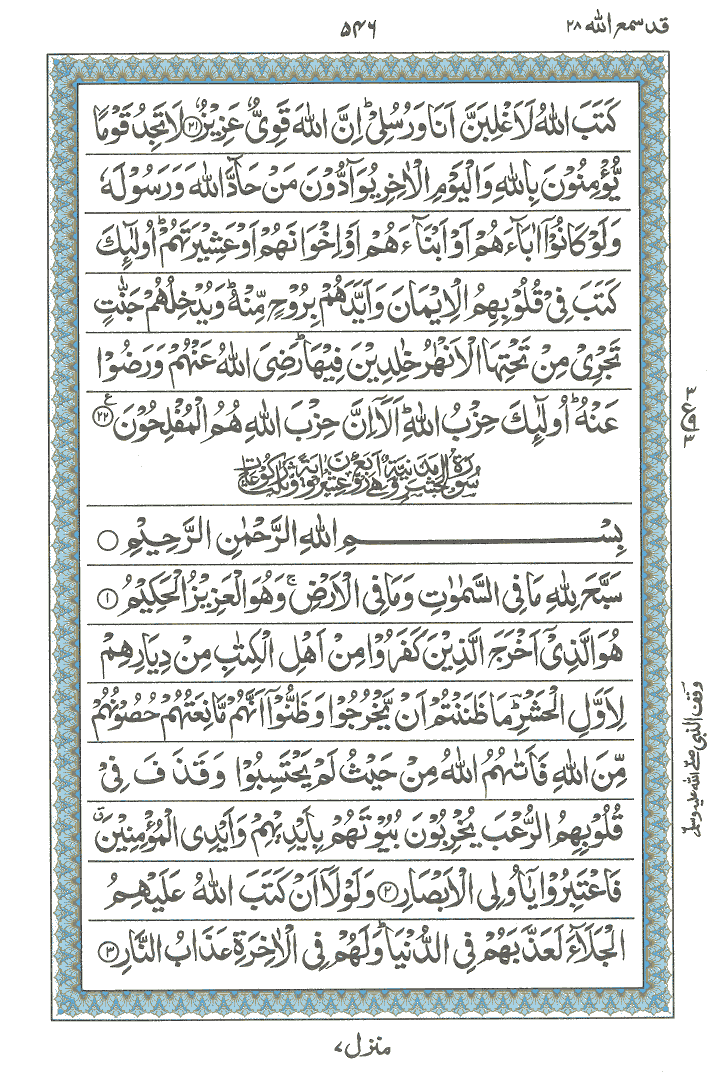 قد سمع الله ۲۸
۵۴۶
كَتَبَ اللّٰهُ لَاَغْلِبَنَّ اَنَا وَرُسُلِیْ ؕ اِنَّ اللّٰهَ قَوِیٌّ عَزِیْزٌ ﴿۲۱﴾ لَا تَجِدُ قَوْمًا
یُّؤْمِنُوْنَ بِاللّٰهِ وَالْیَوْمِ الْاٰخِرِ یُوَآدُّوْنَ مَنْ حَآدَّ اللّٰهَ وَرَسُوْلَهٗ
وَلَوْ كَانُوْۤا اٰبَآءَهُمْ اَوْ اَبْنَآءَهُمْ اَوْ اِخْوَانَهُمْ اَوْ عَشِیْرَتَهُمْ ؕ اُولٰٓئِكَ
كَتَبَ فِیْ قُلُوْبِهِمُ الْاِیْمَانَ وَاَیَّدَهُمْ بِرُوْحٍ مِّنْهُ ؕ وَیُدْخِلُهُمْ جَنّٰتٍ
تَجْرِیْ مِنْ تَحْتِهَا الْاَنْهٰرُ خٰلِدِیْنَ فِیْهَا ؕ رَضِیَ اللّٰهُ عَنْهُمْ وَرَضُوْا
عَنْهُ ؕ اُولٰٓئِكَ حِزْبُ اللّٰهِ ؕ اَلَاۤ اِنَّ حِزْبَ اللّٰهِ هُمُ الْمُفْلِحُوْنَ ﴿۲۲﴾ ع
سُوْرَةُ الْحَشْرِ مَدَنِیَّةٌ وَّهِیَ اَرْبَعٌ وَّعِشْرُوْنَ اٰیَةً وَّثَلٰثُ رُكُوْعَاتٍ
بِسْمِ اللّٰهِ الرَّحْمٰنِ الرَّحِیْمِ ○
سَبَّحَ لِلّٰهِ مَا فِی السَّمٰوٰتِ وَمَا فِی الْاَرْضِ ۚ وَهُوَ الْعَزِیْزُ الْحَكِیْمُ ﴿۱﴾
هُوَ الَّذِیْۤ اَخْرَجَ الَّذِیْنَ كَفَرُوْا مِنْ اَهْلِ الْكِتٰبِ مِنْ دِیَارِهِمْ
لِاَوَّلِ الْحَشْرِ ؔؕ مَا ظَنَنْتُمْ اَنْ یَّخْرُجُوْا وَظَنُّوْۤا اَنَّهُمْ مَّانِعَتُهُمْ حُصُوْنُهُمْ
مِّنَ اللّٰهِ فَاَتٰىهُمُ اللّٰهُ مِنْ حَیْثُ لَمْ یَحْتَسِبُوْا وَقَذَفَ فِیْ
قُلُوْبِهِمُ الرُّعْبَ یُخْرِبُوْنَ بُیُوْتَهُمْ بِاَیْدِیْهِمْ وَاَیْدِی الْمُؤْمِنِیْنَ ۗ
فَاعْتَبِرُوْا یٰۤاُولِی الْاَبْصَارِ ﴿۲﴾ وَلَوْلَاۤ اَنْ كَتَبَ اللّٰهُ عَلَیْهِمُ
الْجَلَآءَ لَعَذَّبَهُمْ فِی الدُّنْیَا ؕ وَلَهُمْ فِی الْاٰخِرَةِ عَذَابُ النَّارِ ﴿۳﴾
۳
ع
۳
وقف النبی صلی الله علیه وسلم
منزل ۷